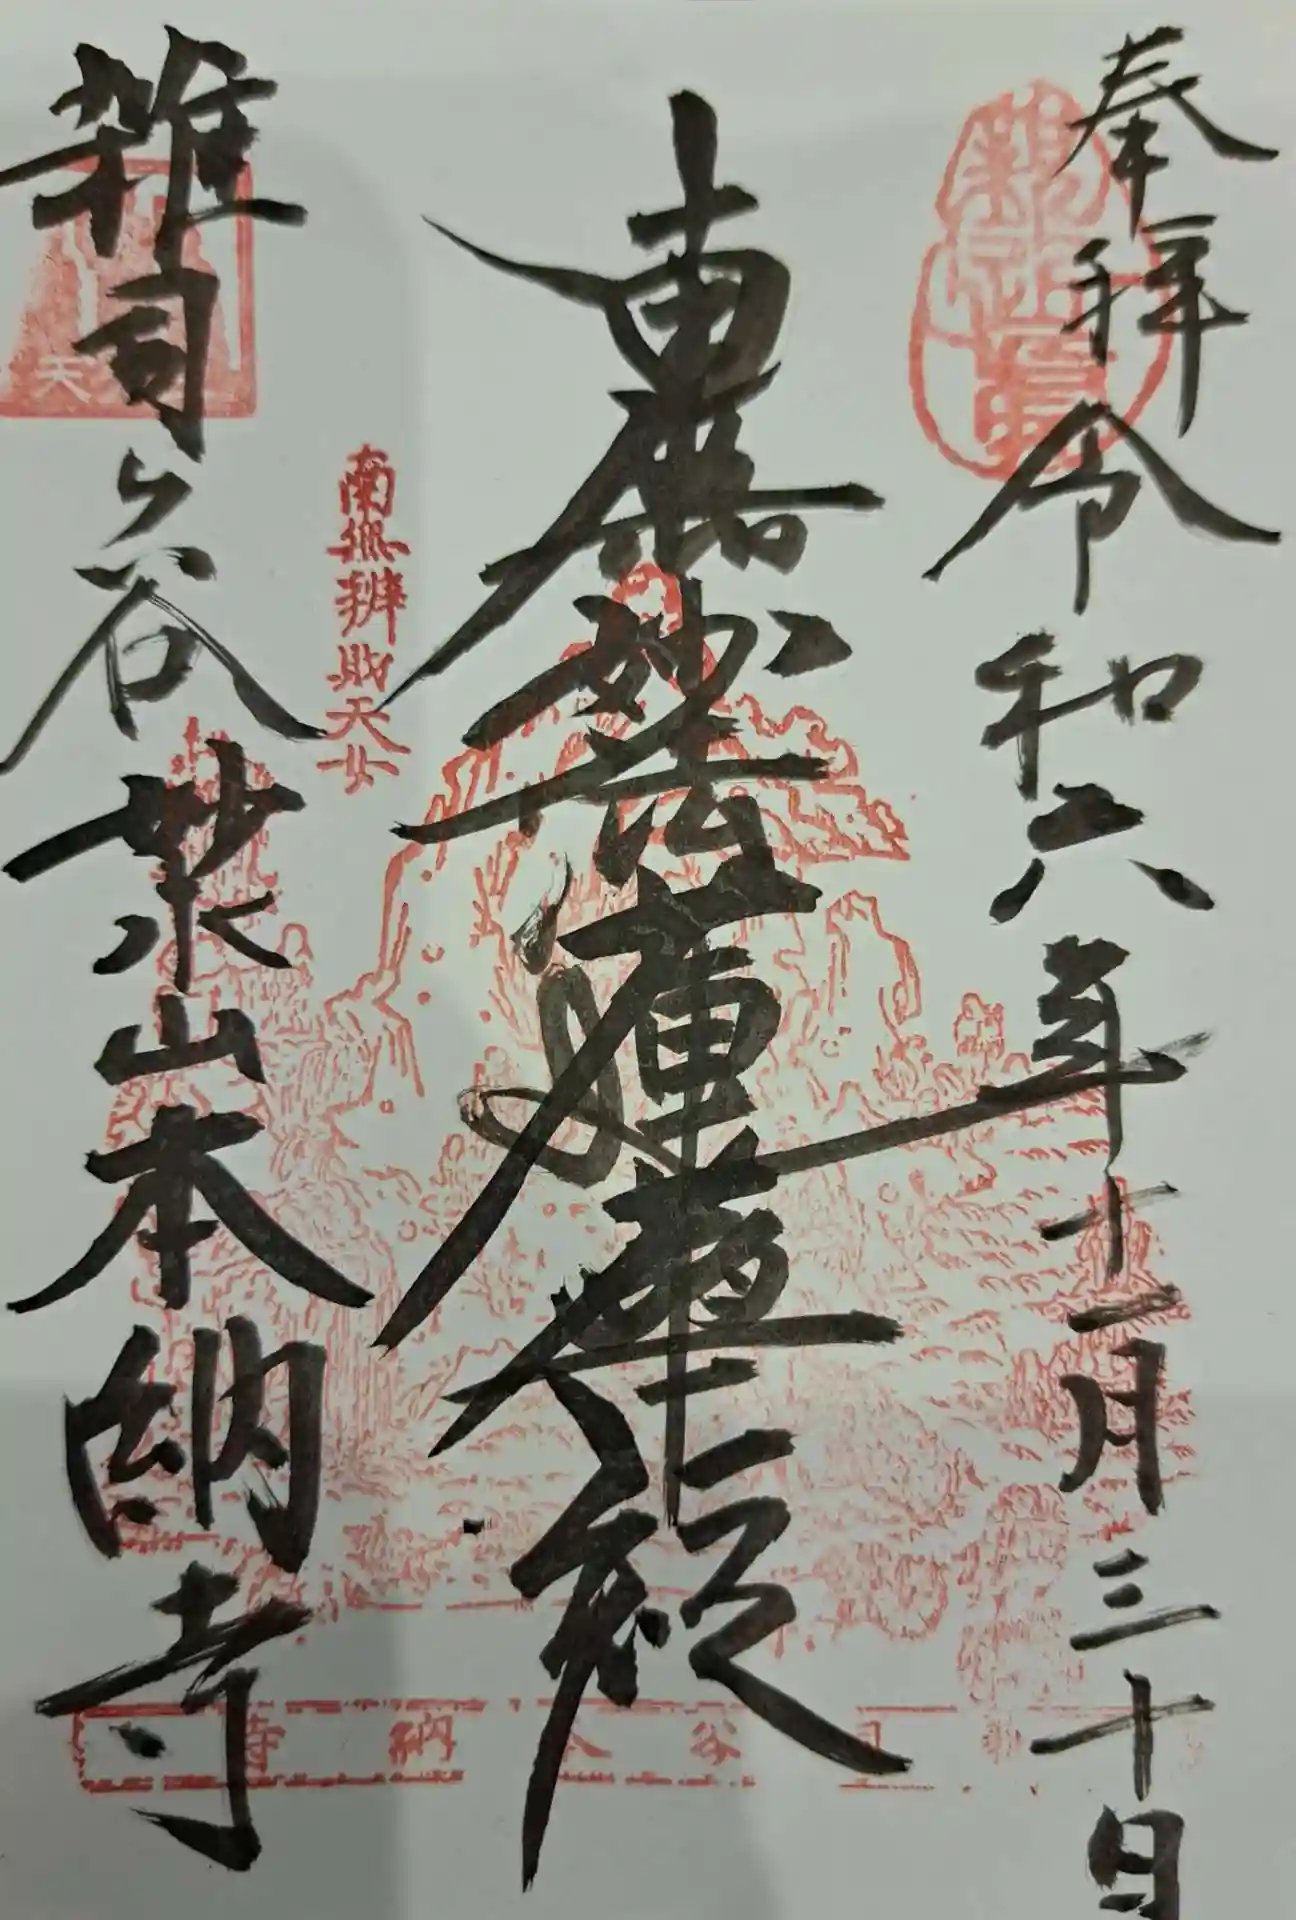 奉拝 令和六年十一月三十日
南無妙法蓮華経
南無辨財天女
雑司ヶ谷 妙泉山 本納寺
天
谷 本納寺